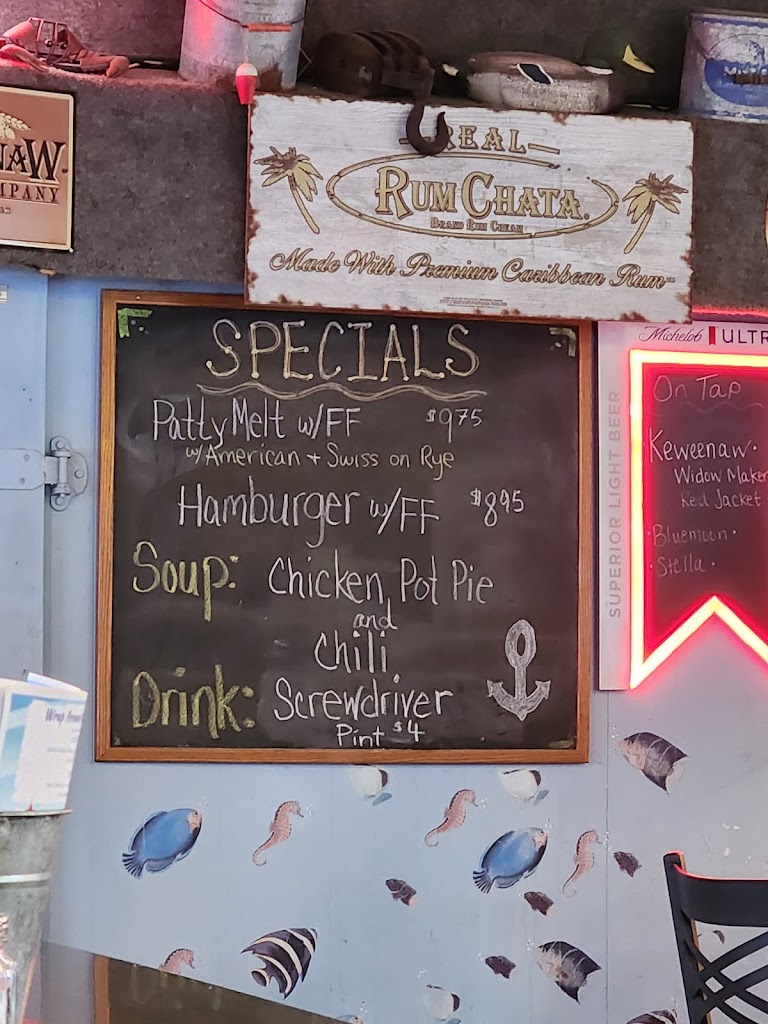 NAW
MPANY
REAL
RUMCHATA
BRAND RUM CREAM
Made With Premium Caribbean Rum
SPECIALS
Patty Melt w/FF $975
w/American + Swiss on Rye
Hamburger w/FF $895
Soup: Chicken Pot Pie
and
Chili
Drink: Screwdriver
Pint $4
Michelob ULTR
SUPERIOR LIGHT BEER
On Tap
Keweenaw.
Widow Maker
Red Jacket
· Bluemoon ·
· Stella ·